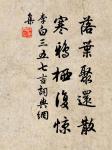 落葉聚還散
寒鴉棲復驚
李白三五七言詞興網
集